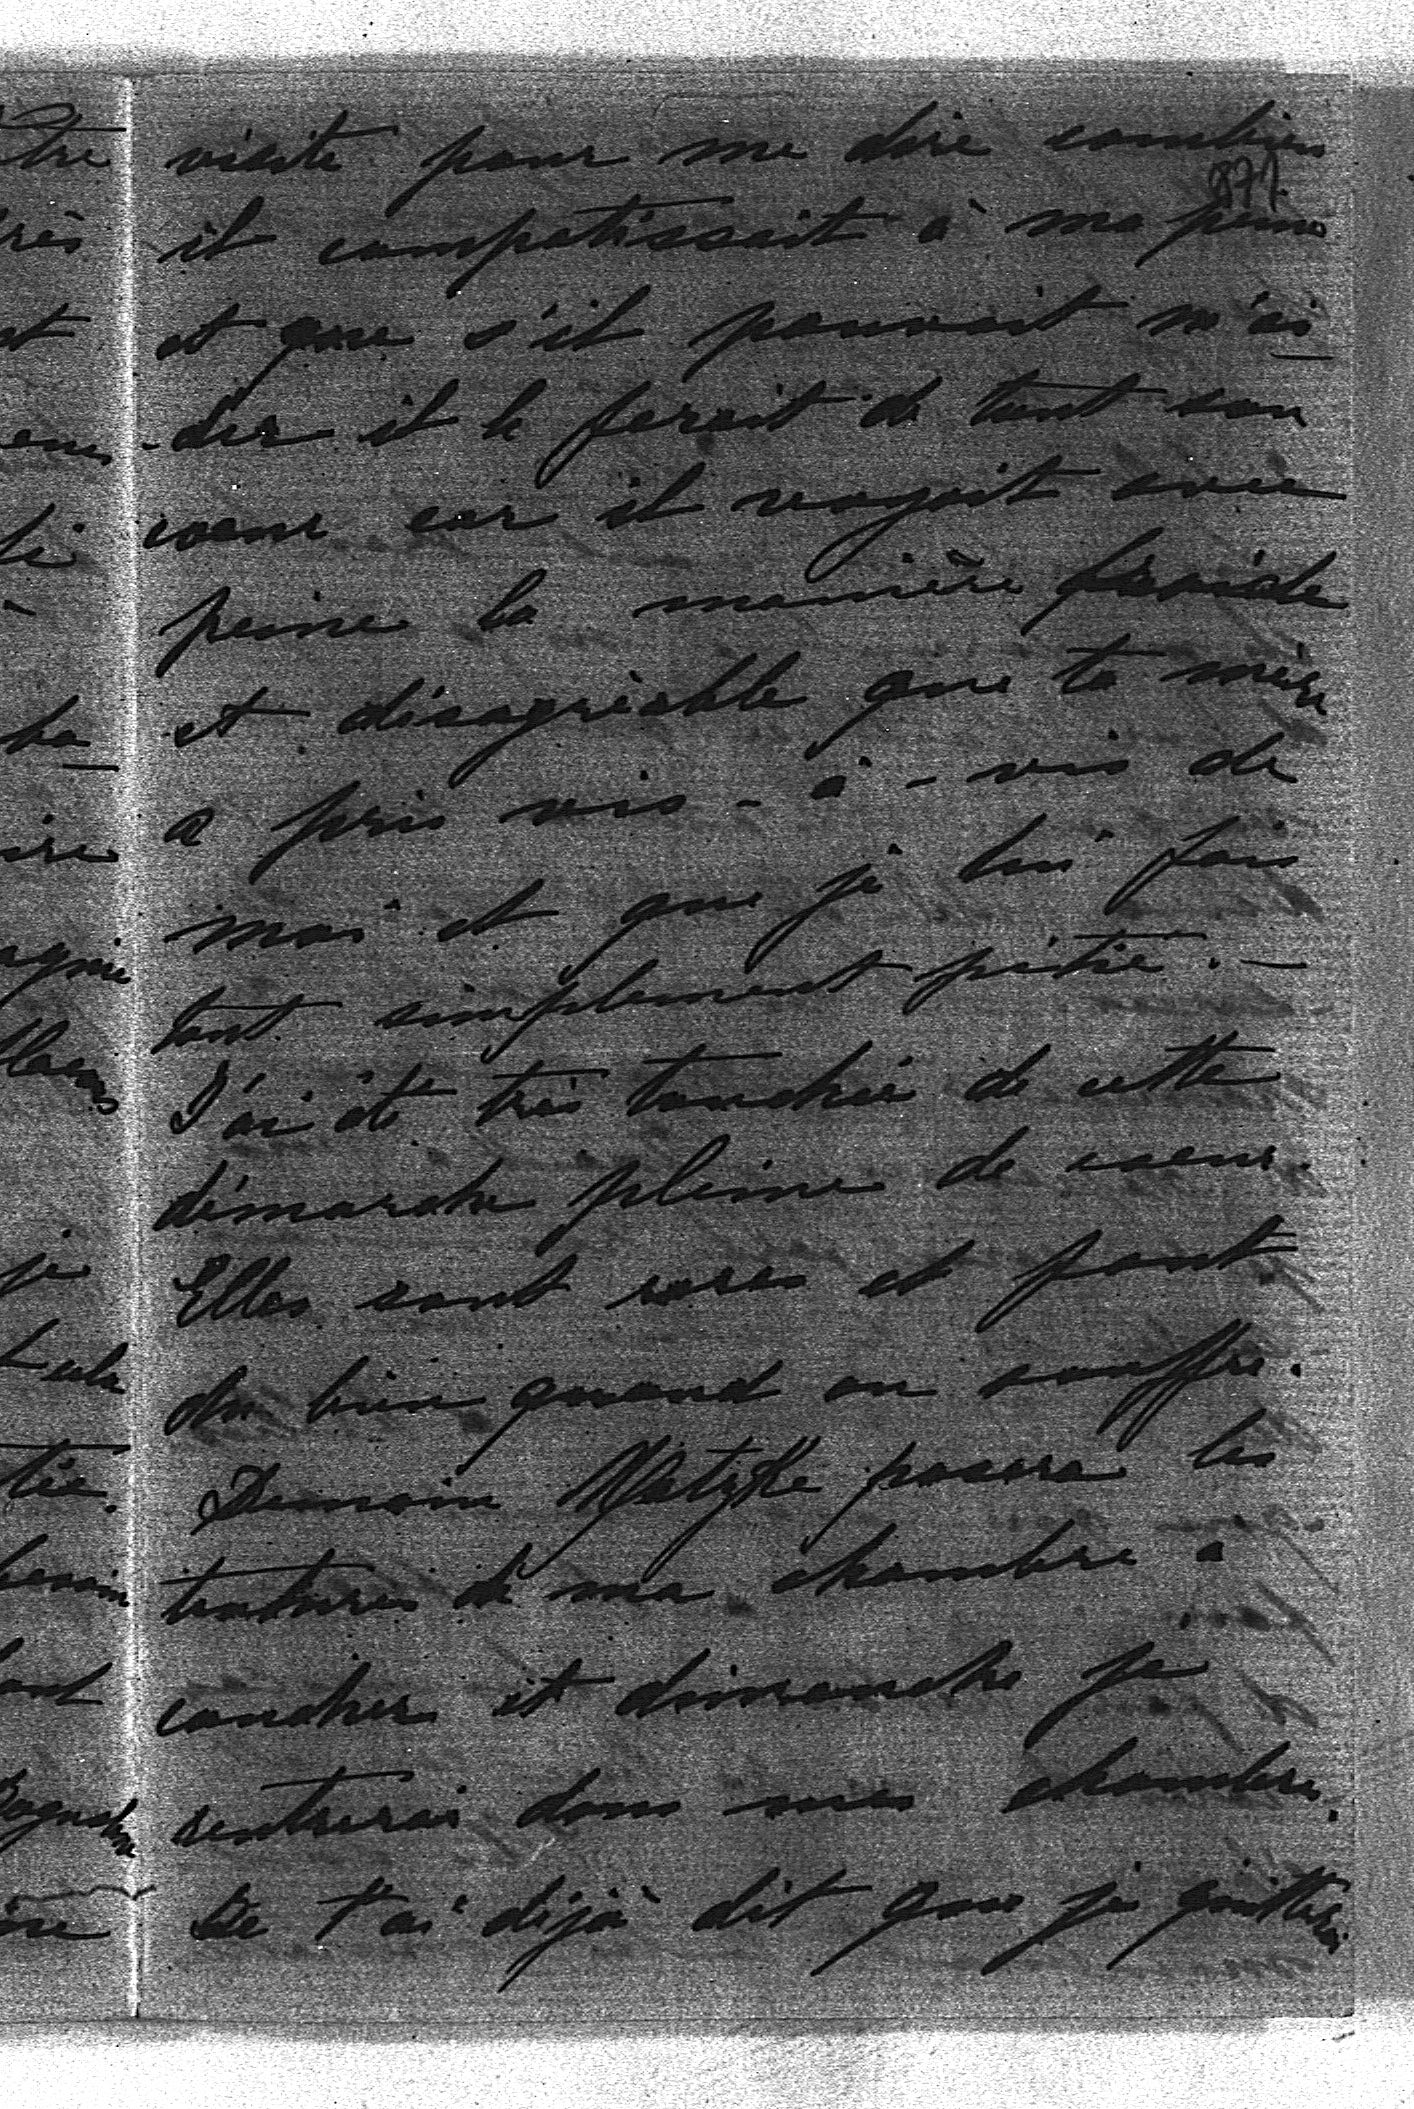 visite pour me dire combien
871
il compatissait à ma peine
et que s'il pouvait m'ai
-der il le ferait de tout son
coeur car il voyait avec
peine la manière froide
et désagréable que ta mère
a pris vis-à-vis de
moi et que je lui fais
tout simplement pitié. —
J'ai été très touchée de cette
démarche pleine de coeur.
Elles sont rares et font
du bien quand on souffre.
Demain posera les
tentures de ma chambre à
coucher et dimanche je
rentrerai dans mes chambres.
Je t'ai déjà dit que je quitterai